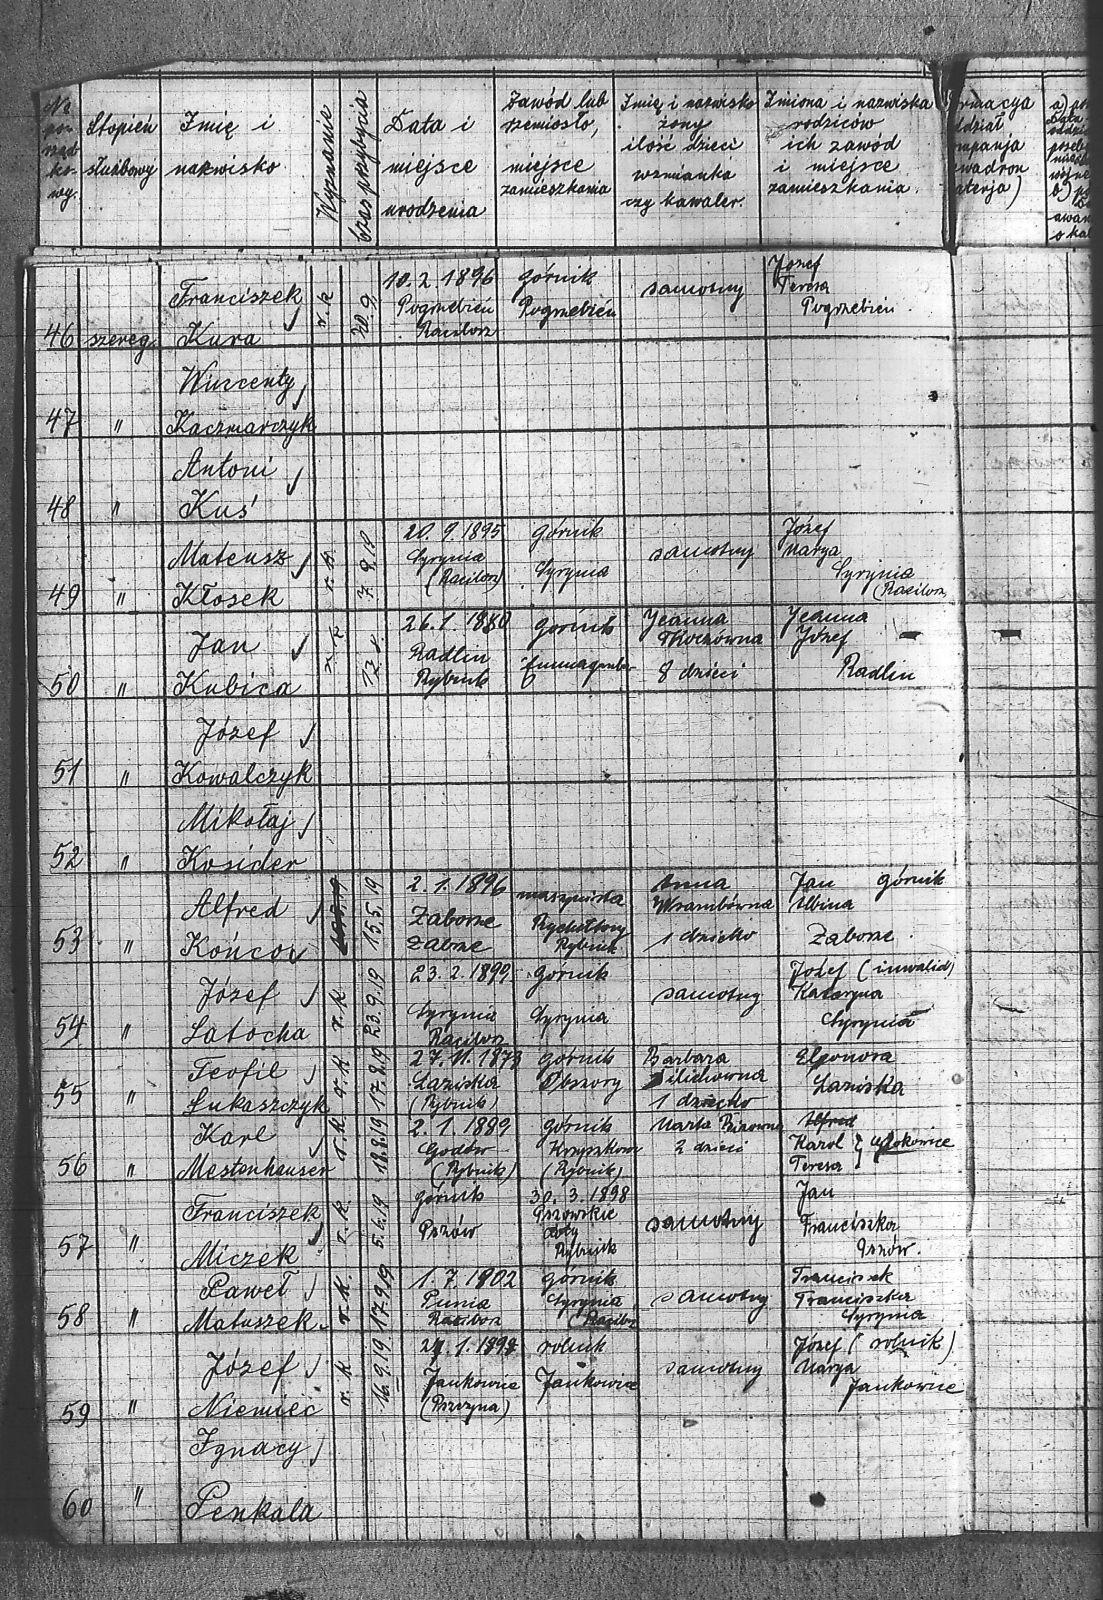 No porządkowy.
Stopień służbowy
Imię i nazwisko
Wyznanie
Czas przybycia
Data i miejsce urodzenia
Zawód lub rzemiosło, miejsce zamieszkania
Imię i nazwisko żony ilość dzieci wzmianka czy kawaler.
Imiona i nazwiska rodziców ich zawód i miejsce zamieszkania.
46 szereg. Franciszek Kura r.k 10.2.1896 Pogrzebień Racibórz górnik Pogrzebień samotny Józef Teresa Pogrzebień
47 " Wincenty Kaczmarczyk
48 " Antoni Kuś
49 " Mateusz Kłosek r.k. 7.9.19 20.9.1895 Syrynia (Racibórz) górnik Syrynia samotny Józef Marya Syrynia (Racibórz
50 " Jan Kubica r.k 26.1.1880 Radlin Rybnik górnik 8 dzieci Józef Radlin
51 " Józef Kowalczyk
52 " Mikołaj Kosider
53 " Alfred Końcoś 15.5.19 2.1.1896 Zaborze Zabrze maszynista Rydułtowy Rybnik Anna 1 dziecko Jan górnik Albina Zaborze
54 " Józef Latocha r.k. 23.9.19 23.2.1899 Syrynia Racibórz górnik Syrynia samotny Józef (inwalid) Katarzyna Syrynia
55 " Teofil Łukaszczyk r.k 17.8.19 27.11.1873 Łaziska (Rybnik) górnik Obszory Barbara 1 dziecko Eleonora Łaziska
56 " Karl Mestenhauser r.k. 18.8.19 2.1.1889 Godów (Rybnik) górnik Krzyszkow (Rybnik) Marta 2 dzieci Alfred Karol Teresa
57 " Franciszek Miczek r.k. 5.6.19 górnik Pszów 30.3.1898 Pszowskie Doły Rybnik samotny Jan Franciszka Pszów.
58 " Paweł Matuszek r.k. 17.9.19 1.7.1902 Racibórz górnik Syrynia (Racibórz samotny Franciszek Franciszka Syrynia
59 " Józef Niemiec r.k 16.9.19 Jankowice (Pszczyna) rolnik Jankowice samotny Józef (rolnik) Marya Jankowice
60 " Ignacy Penkala